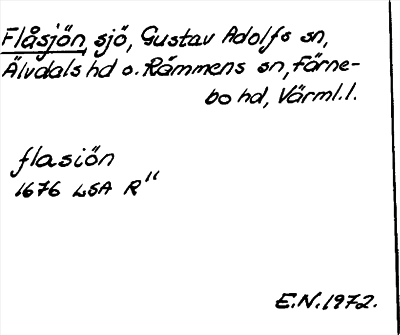 Flåsjön, sjö, Gustav Adolfs sn,
Älvdals hd o. Rämmens sn, Färne-
bo hd, Värml.l.
flasiön
1676 LSA R"
E.N. 1972.